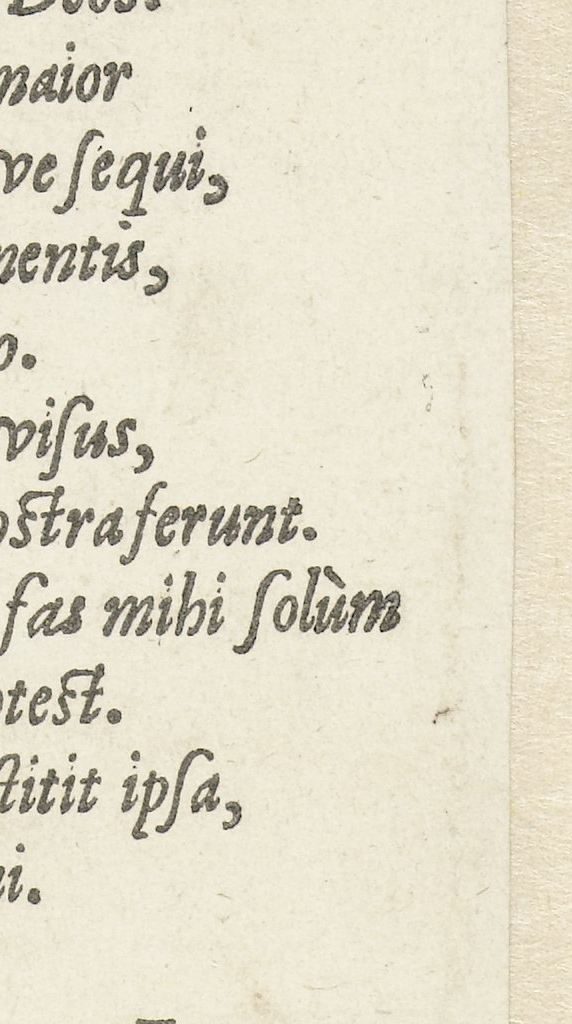 maior
ve ſequi,
mentis,
o.
viſus,
oſtra ferunt.
fas mihi ſolùm
oteſt.
ſtitit ipſa,
ni.